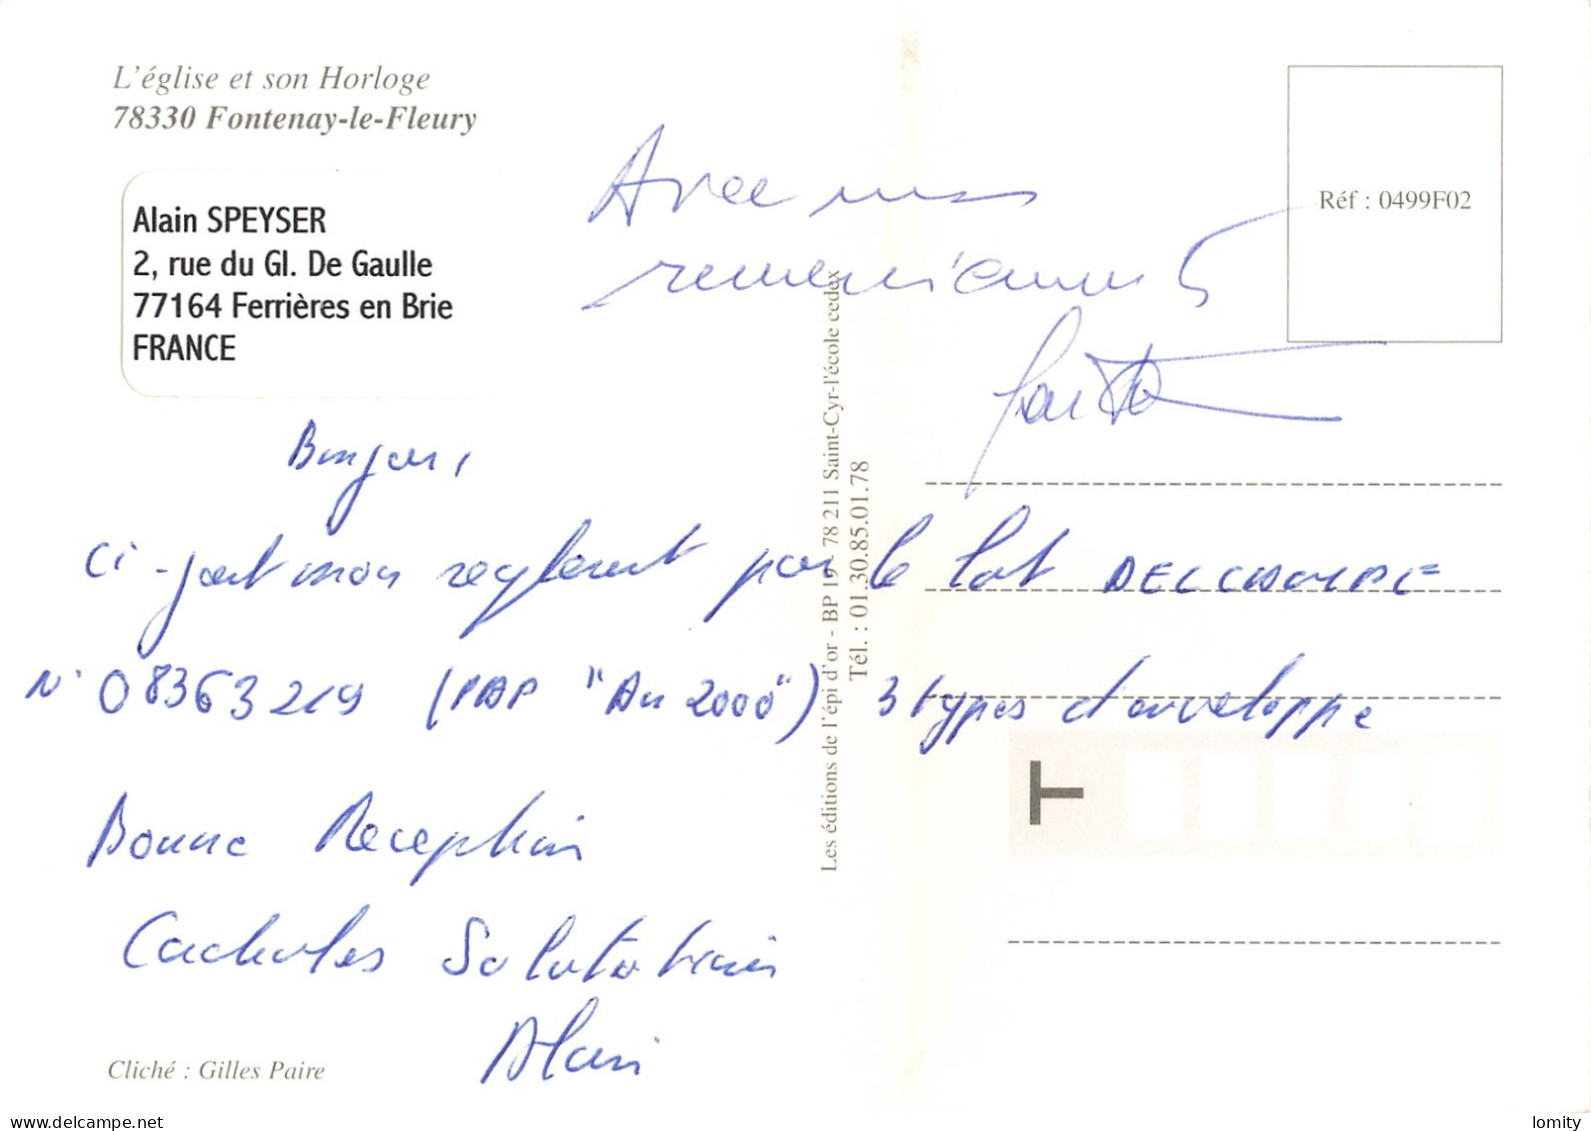 L'église et son Horloge
78330 Fontenay-le-Fleury
Alain SPEYSER
2, rue du Gl. De Gaulle
77164 Ferrières en Brie
FRANCE
Avec mes
remerciements
Réf : 0499F02
Bonjour,
Ci-joint mon reglement pour le lot DELCAMPE
N° 08363219 (PAP "An 2000") 3 types d'enveloppe
Bonne Reception
Cordiales Salutations
Alain
Les éditions de l'épi d'or - BP 19 - 78 211 Saint-Cyr-l'école cedex
Tél. : 01.30.85.01.78
T
Cliché : Gilles Paire
www.delcampe.net
lomity